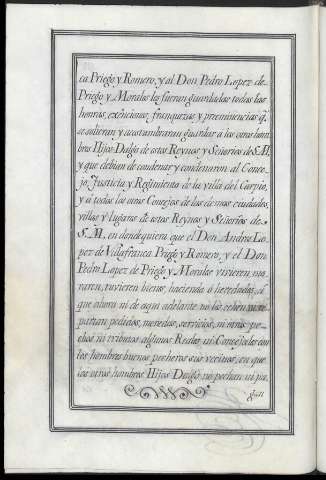 ca Priego y Romero, y al Don Pedro Lopez de
Priego y Morales les fueran guardadas todas las
honras, exenciones, franquezas, y preeminencias q.
se solieran y acostumbraran guardar a los otros hom
bres Hijos-Dalgo de estos Reynos y Señorios de S.M.
y que debian de condenar y condenaron al Conce-
jo, Justicia y Regimiento de la villa del Carpio,
y a todos los otros Concejos de las demas ciudades,
villas y lugares de estos Reynos y Señorios de
S. M. en donde quiera que el Don Andres Lo-
pez de Villafranca Priego y Romero, y el Don
Pedro Lopez de Priego y Morales vivieren, mo
raren, tuvieren bienes, hacienda ó heredades, á
que ahora ni de aqui adelante no les echen ni re
partan pedidos, monedas, servicios, ni otros pe-
chos ni tributos algunos Reales, ni Concejales con
los hombres buenos pecheros sus vecinos, en que
los otros hombres Hijos Dalgo no pechan ni pa,